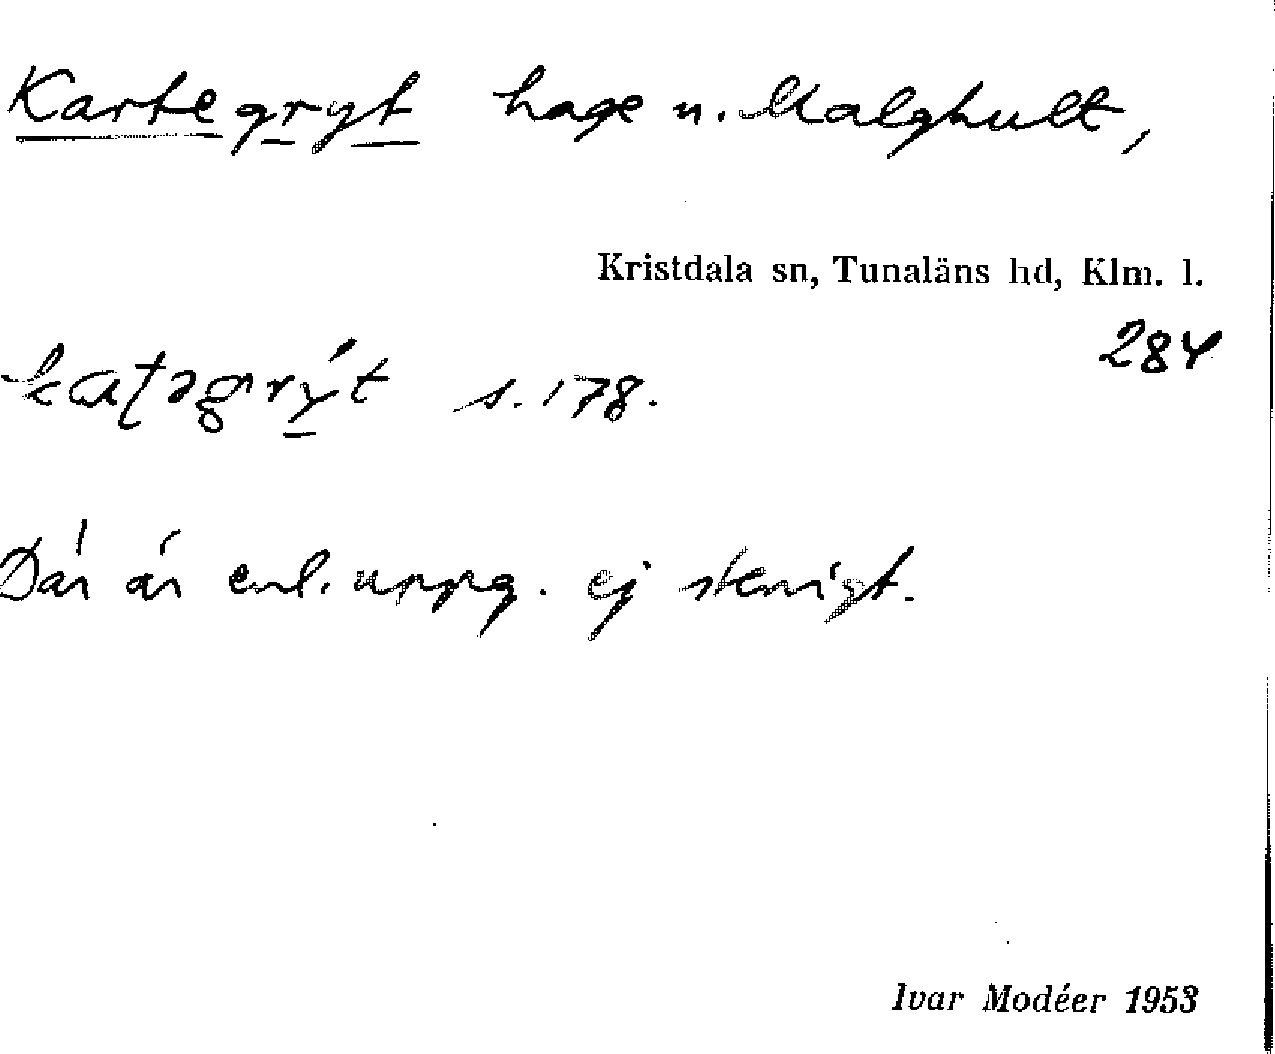 Kartegryt hage n. Malghult,
Kristdala sn, Tunaläns hd, Klm. l.
284
kaʈəgrýt s. 178.
Där är enl. uppg. ej stenigt.
Ivar Modéer 1953